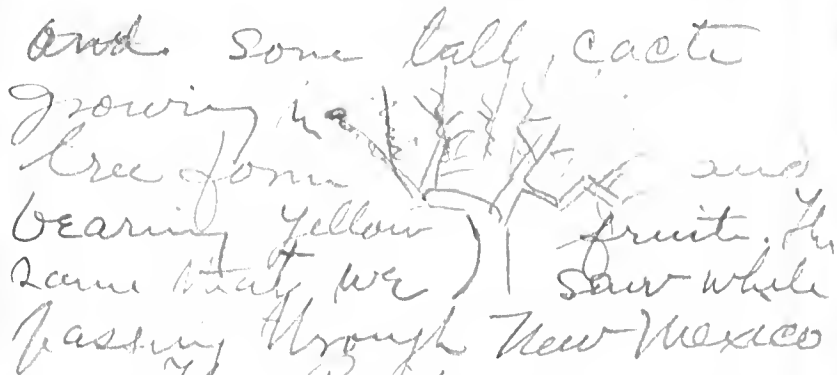 and some tall, cacti
growing in a
tree form and
bearing yellow fruit. The
same that we saw while
passing through New Mexico